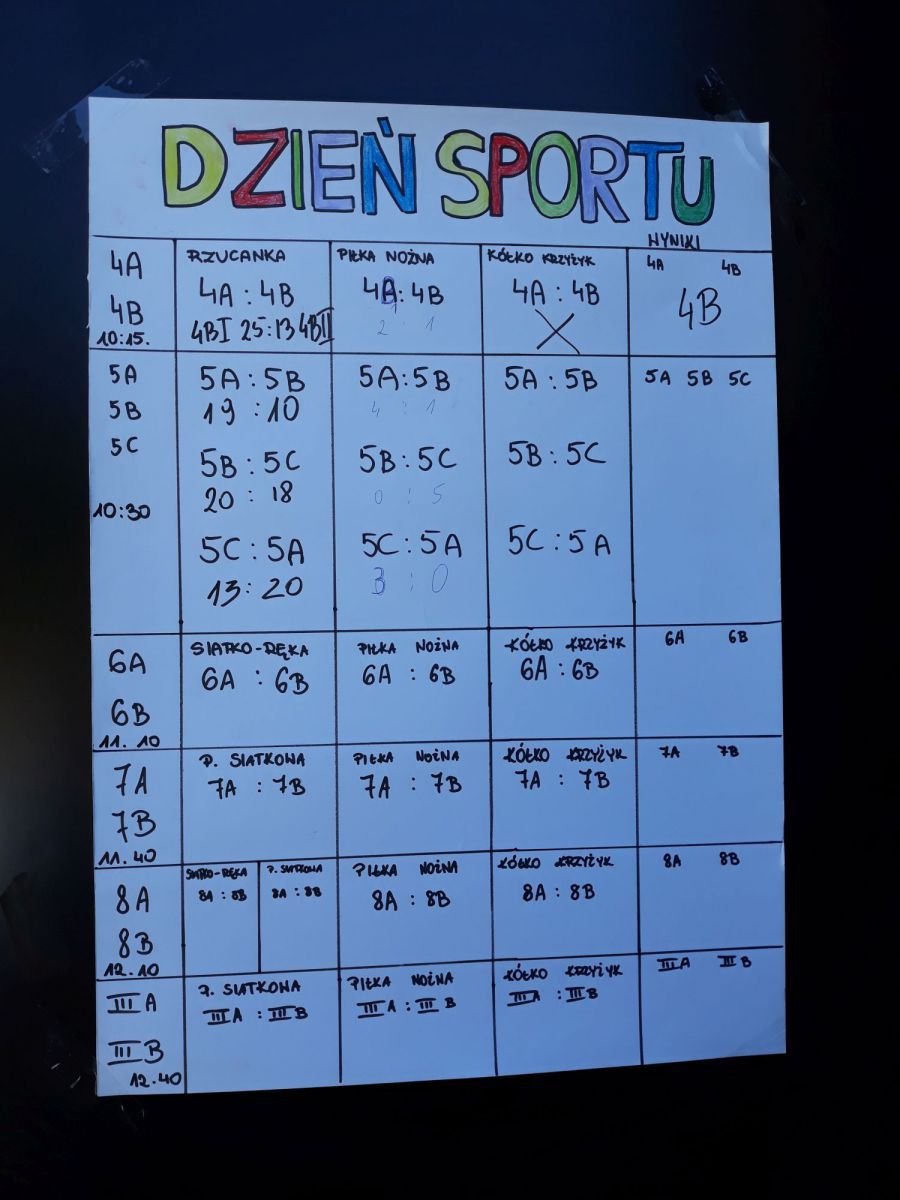 DZIEŃ SPORTU
WYNIKI
4A
4B
10:15.
RZUCANKA
4A : 4B
4BI 25:13 4BII
PIŁKA NOŻNA
4A : 4B
2 : 1
KÓŁKO KRZYŻYK
4A : 4B
X
4A 4B
4B
5A
5B
5C
10:30
5A : 5B
19 : 10
5B : 5C
20 : 18
5C : 5A
13 : 20
5A : 5B
4 : 1
5B : 5C
0 : 5
5C : 5A
3 : 0
5A : 5B
5B : 5C
5C : 5A
5A 5B 5C
6A
6B
11.10
SIATKO-RĘKA
6A : 6B
PIŁKA NOŻNA
6A : 6B
KÓŁKO KRZYŻYK
6A : 6B
6A 6B
7A
7B
11.40
P. SIATKOWA
7A : 7B
PIŁKA NOŻNA
7A : 7B
KÓŁKO KRZYŻYK
7A : 7B
7A 7B
8A
8B
12.10
SIATKO-RĘKA
8A : 8B
P. SIATKOWA
8A : 8B
PIŁKA NOŻNA
8A : 8B
KÓŁKO KRZYŻYK
8A : 8B
8A 8B
III A
III B
12.40
P. SIATKOWA
III A : III B
PIŁKA NOŻNA
III A : III B
KÓŁKO KRZYŻYK
III A : III B
III A III B